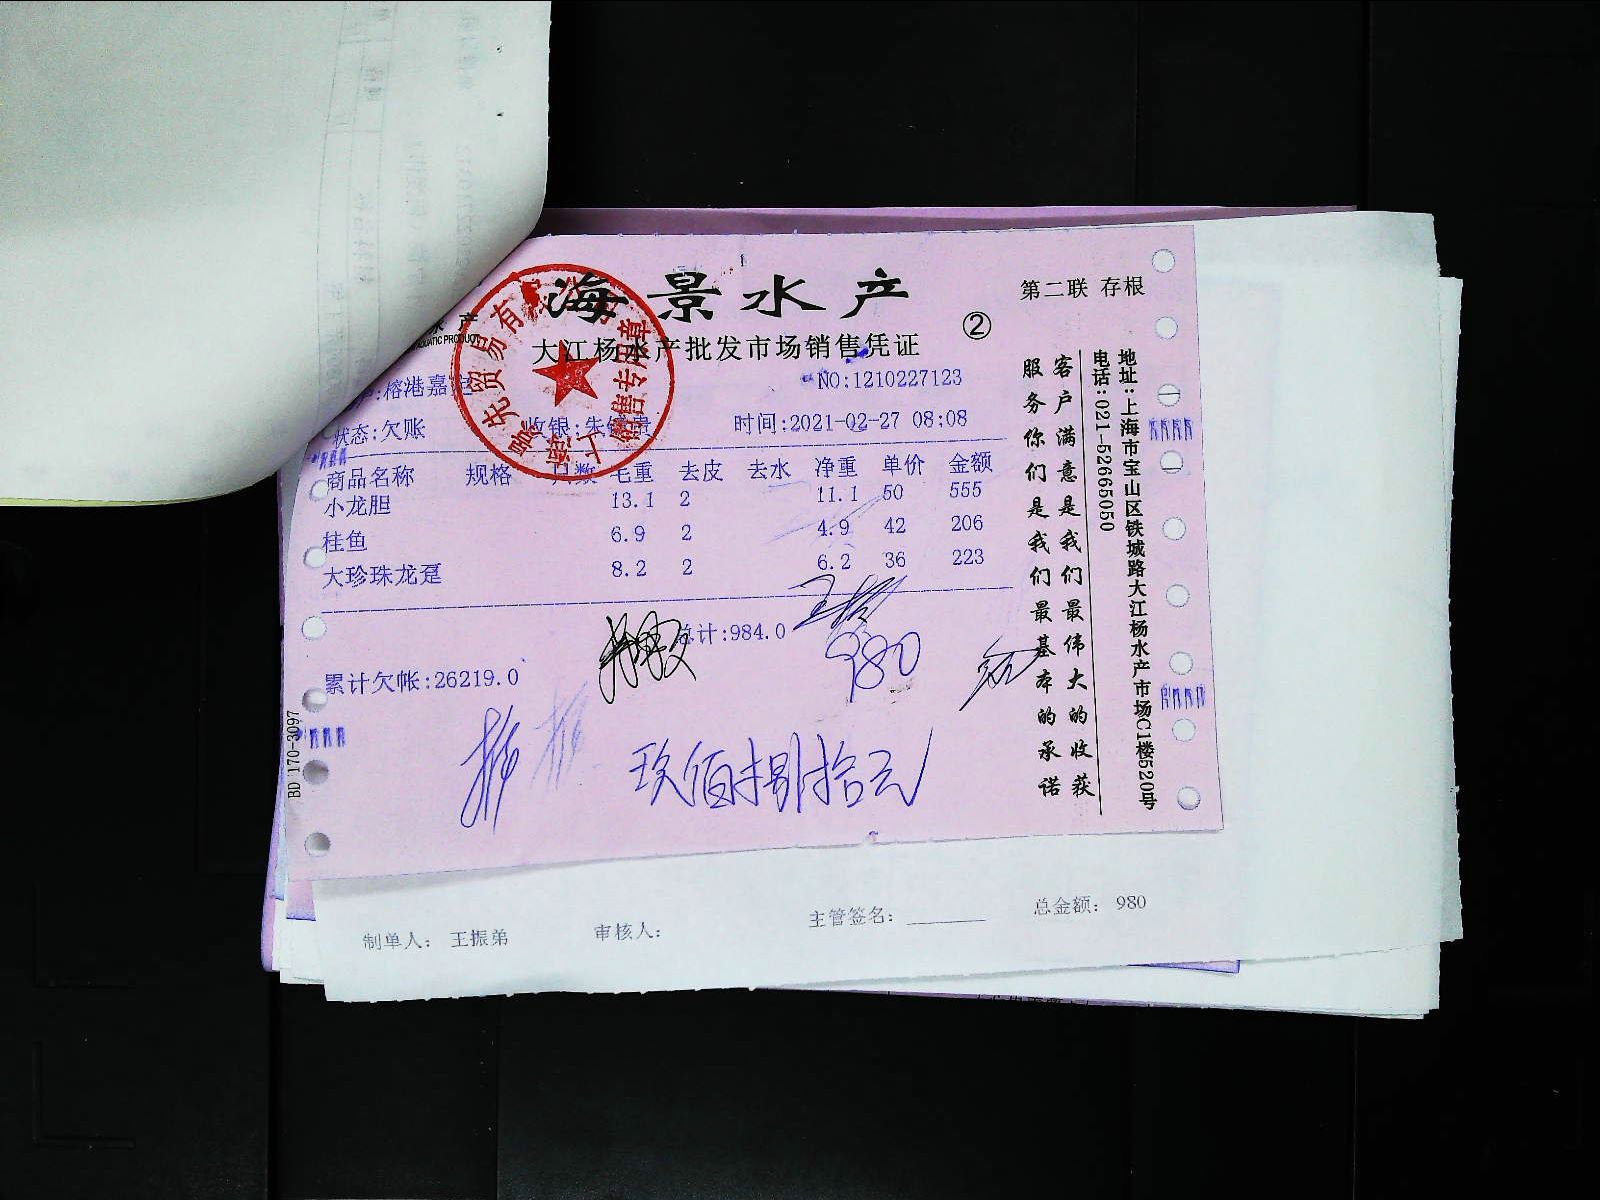 海景水产
第二联 存根
大江杨水产批发市场销售凭证
②
NO:1210227123
榕港嘉定
状态:欠账 收银:朱 时间:2021-02-27 08:08
商品名称 规格 只数 毛重 去皮 去水 净重 单价 金额
小龙胆 13.1 2 11.1 50 555
桂鱼 6.9 2 4.9 42 206
大珍珠龙趸 8.2 2 6.2 36 223
总计:984.0
980
累计欠帐:26219.0
玖佰捌拾元
客户满意是我们最伟大的收获
服务你们是我们最基本的承诺
地址:上海市宝山区铁城路大江杨水产市场C1楼520号
电话:021-52665050
BD 170-3097
销售专用章
制单人: 王振弟 审核人: 主管签名: 总金额: 980